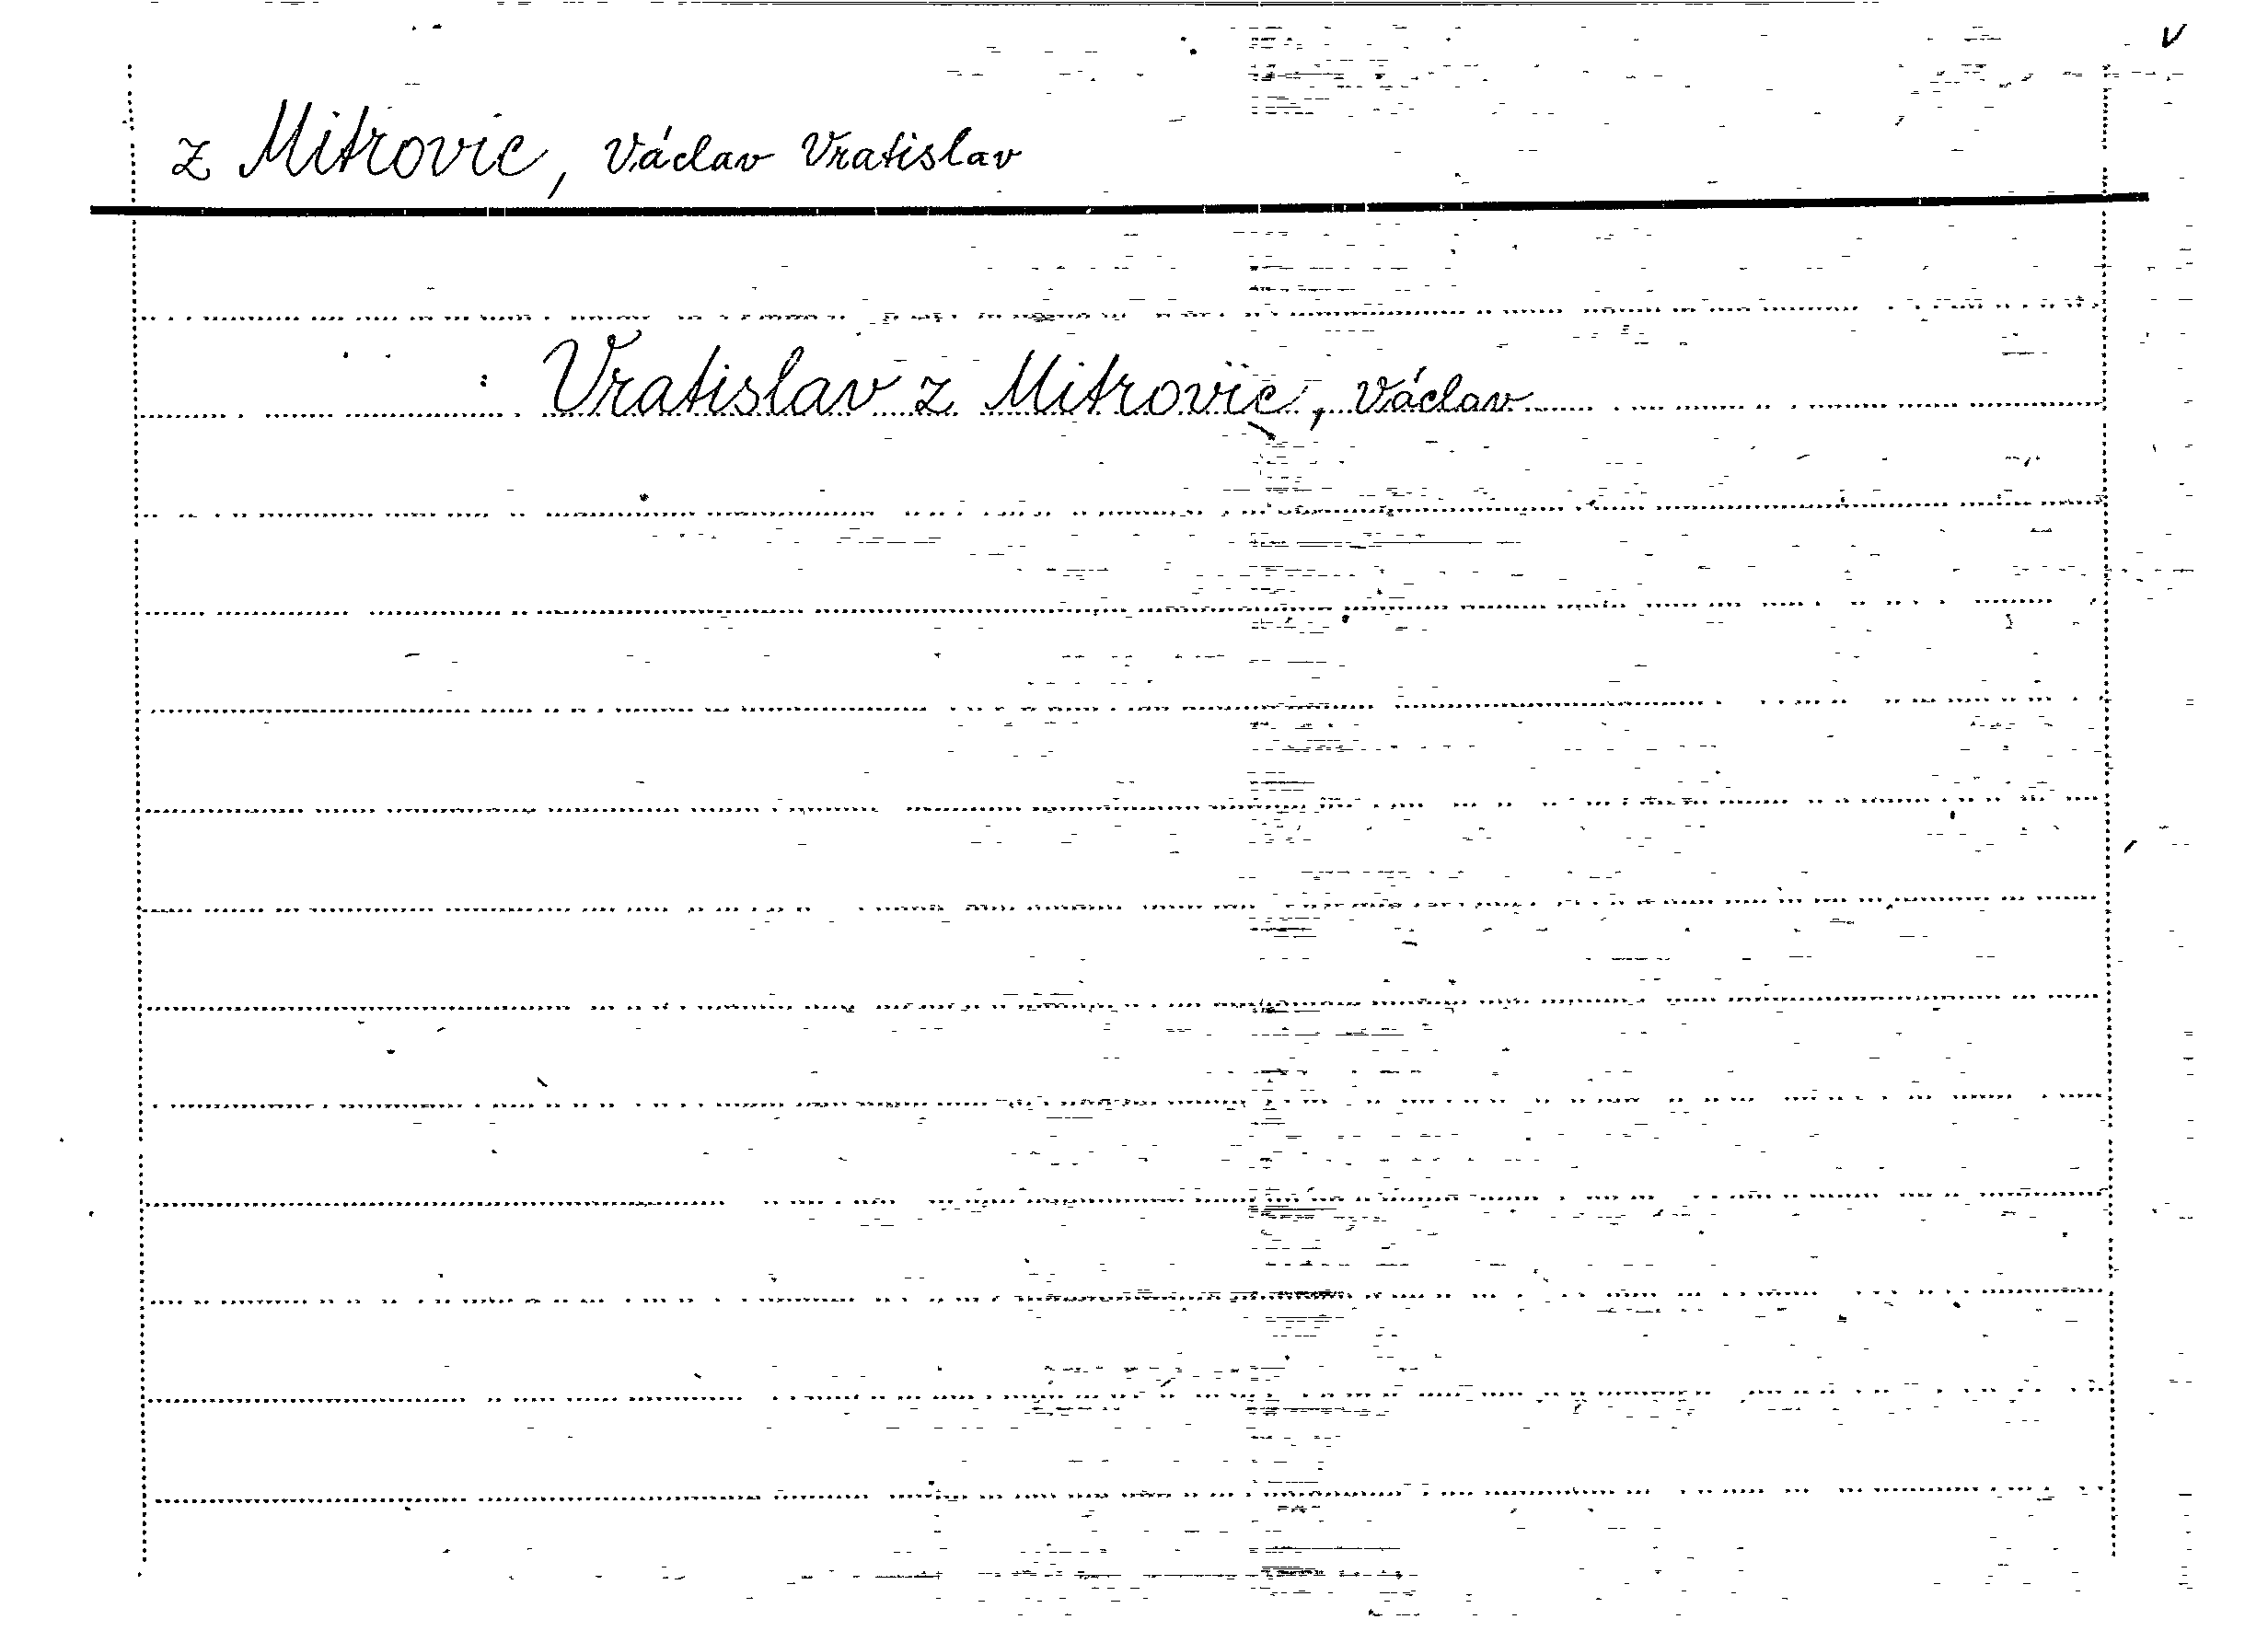 v
z Mitrovic, Václav Vratislav
: Vratislav z Mitrovic, Václav